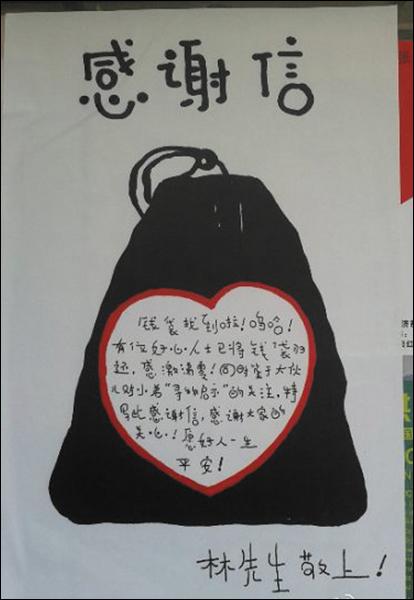 感谢信
钱袋找到啦！呜哈！
有位好心人士已将钱袋归
还，感激涕零！同时鉴于大伙
儿对小弟“寻物启示”的关注，特
写此感谢信，感谢大家的
关心！愿好人一生
平安！
林先生敬上！